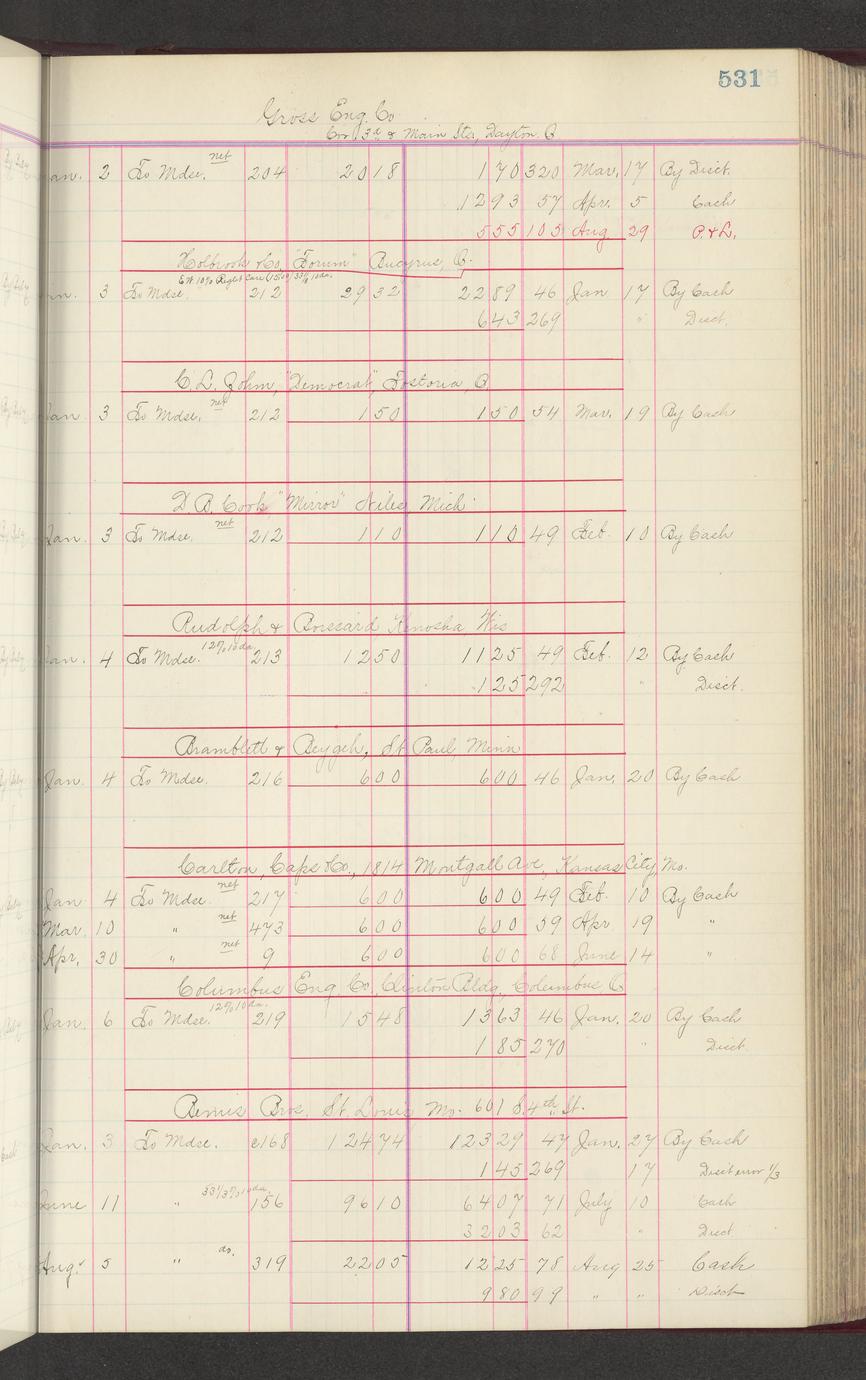 531
Gross Eng. Co
Cor. 3d & Main Sts, Dayton O
Jan. 2 To Mdse. net 204 2018 170 320 Mar. 17 By Disct.
1293 57 Apr. 5 Cash
555 105 Aug 29 P. & L.
Holbrook & Co. "Forum" Bucyrus, O.
Jan. 3 To Mdse. 212 2932 2289 46 Jan 17 By Cash
643 269 " Disct.
C. L. Zohm, "Democrat", Fostoria, O
Jan 3 To Mdse. net 212 150 150 54 Mar. 19 By Cash
D B. Cook "Mirror" Niles, Mich
Jan. 3 To Mdse. net 212 110 110 49 Feb. 10 By Cash
Rudolph & Kenosha, Wis
Jan. 4 To Mdse. 12% 10 da 213 1250 1125 49 Feb. 12 By Cash
125 292 " Disct.
Bramblett & Beygeh, St Paul Minn
Jan. 4 To Mdse. 216 600 600 46 Jan. 20 By Cash
Carlton, Caps & Co., 1814 Montgall Ave, Kansas City, Mo.
Jan 4 To Mdse. net 217 600 600 49 Feb. 10 By Cash
Mar. 10 " net 473 600 600 59 Apr 19 "
Apr. 30 " net 9 600 600 68 June 14 "
Columbus Eng. Co., Clinton Bldg., Columbus, O
Jan. 6 To Mdse. 12% 10 da. 219 1548 1363 46 Jan. 20 By Cash
185 270 " Disct
Bemis Bros. St. Louis Mo. 601 S. 4th St.
Jan. 3 To Mdse. c168 12474 12329 47 Jan. 27 By Cash
145 269 17 Disct error 1/3
June 11 " 33 1/3% 10 da. 156 9610 6407 71 July 10 Cash
3203 62 " Disct
Aug. 5 " 319 2205 1225 78 Aug 25 Cash
980 99 " " Disct